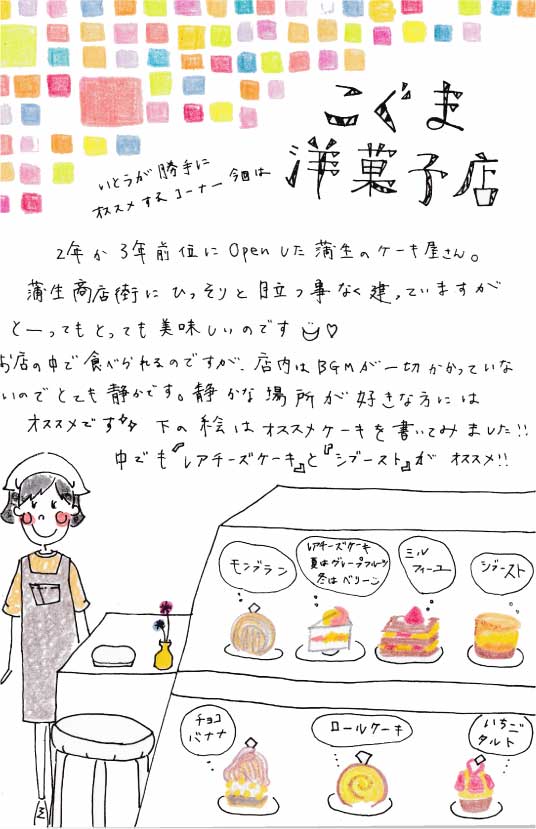 こぐま
洋菓子店
いとうが勝手に
オススメするコーナー 今回は
2年か3年前位にOpenした蒲生のケーキ屋さん。
蒲生商店街にひっそりと目立つ事なく建っていますが
とーってもとっても美味しいのです♡
お店の中で食べられるのですが、店内はBGMが一切かかっていな
いのでとても静かです。静かな場所が好きな方には
オススメです 下の絵はオススメケーキを書いてみました!!
中でも『レアチーズケーキ』と『シブースト』がオススメ!!
モンブラン
レアチーズケーキ
夏はグレープフルーツ
冬はベリーン
ミル
フィーユ
シブースト
チョコ
バナナ
ロールケーキ
いちご
タルト